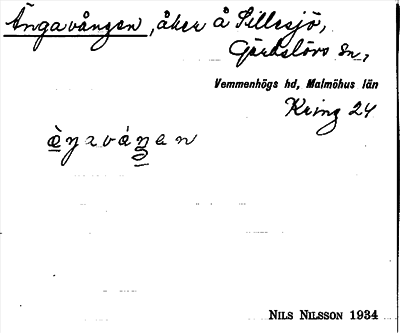 Ängavången, åker å Sillesjö,
Gärdslövs sn,
Vemmenhögs hd, Malmöhus län
Kring 24
NILS NILSSON 1934